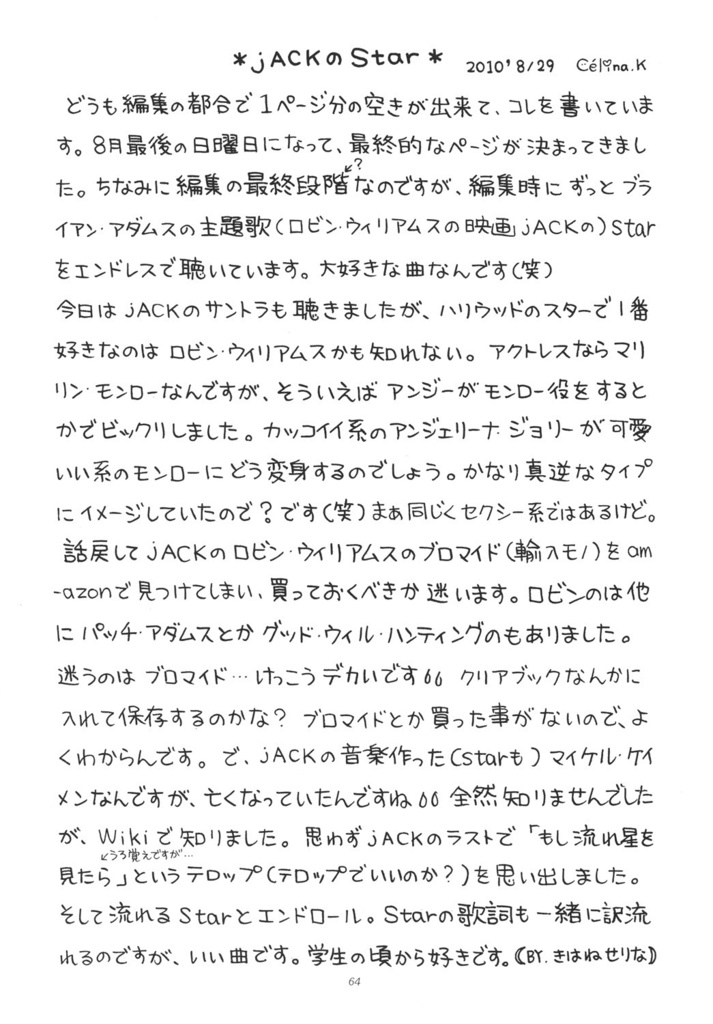 *jACKのStar* 2010'8/29 Célina.K
どうも編集の都合で1ページ分の空きが出来て、コレを書いていま
す。8月最後の日曜日になって、最終的なページが決まってきまし
↙?
た。ちなみに編集の最終段階なのですが、編集時にずっとブラ
イアン・アダムスの主題歌(ロビン・ウィリアムスの映画jACKの)Star
をエンドレスで聴いています。大好きな曲なんです(笑)
今日はjACKのサントラも聴きましたが、ハリウッドのスターで1番
好きなのはロビン・ウィリアムスかも知れない。アクトレスならマリ
リン・モンローなんですが、そういえばアンジーがモンロー役をすると
かでビックリしました。カッコイイ系のアンジェリーナ ジョリーが可愛
いい系のモンローにどう変身するのでしょう。かなり真逆なタイプ
にイメージしていたので?です(笑)まぁ同じくセクシー系ではあるけど。
話戻してjACKのロビン・ウィリアムスのブロマイド(輸入モノ)をam
-azonで見つけてしまい、買っておくべきか迷います。ロビンのは他
にパッチ・アダムスとかグッド・ウィル・ハンティングのもありました。
迷うのはブロマイド…けっこうデカいです クリアブックなんかに
入れて保存するのかな?ブロマイドとか買った事がないので、よ
くわからんです。で、jACKの音楽作った(Starも)マイケル・ケイ
メンなんですが、亡くなっていたんですね 全然知りませんでした
が、Wikiで知りました。思わずjACKのラストで「もし流れ星を
↙うろ覚えですが…
見たら」というテロップ(テロップでいいのか?)を思い出しました。
そして流れるStarとエンドロール。Starの歌詞も一緒に訳流
れるのですが、いい曲です。学生の頃から好きです。《BY.きはねせりな》
64